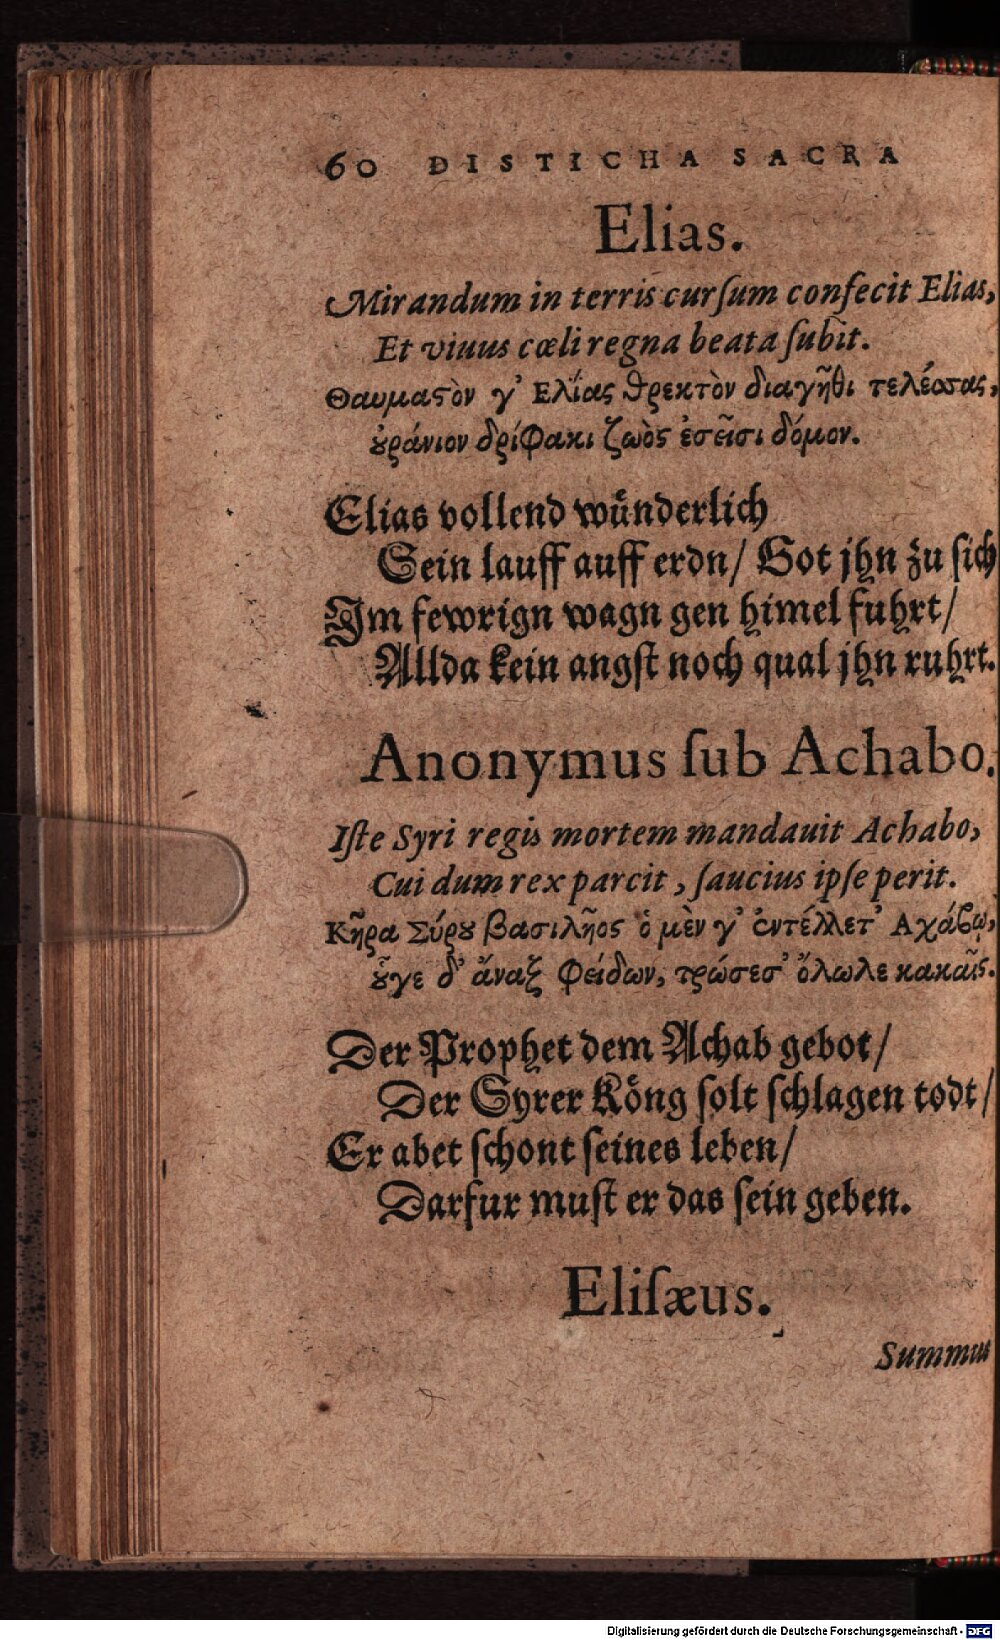 60 DISTICHA SACRA
Elias.
Mirandum in terris curſum confecit Elias,
Et viuus cœli regna beata ſubit.
Θαυμαϛὸν γ' Ελίας θρεκτὸν διαγῆθι τελέσσας,
ȣράνιον δρίφακι ζωὸς ἐσεῖσι δόμον.
Elias vollend wůnderlich
Sein lauff auff erdn/ Got jhn zu ſich
Im fewrign wagn gen himel fuhrt/
Allda kein angſt noch qual jhn ruhrt.
Anonymus ſub Achabo.
Iſte Syri regis mortem mandauit Achabo,
Cui dum rex parcit, ſaucius ipſe perit.
Κῆρα Σύρȣ βασιλῆος ὁ μὲν γ' ἐντέλλετ' Αχάβῳ,
ȣ̓͂γε δ' ἄναξ φείδων, τρώσεσ' ὄλωλε κακαῖς.
Der Prophet dem Achab gebot/
Der Syrer Kŏng ſolt ſchlagen todt/
Er abet ſchont ſeines leben/
Darfur muſt er das ſein geben.
Eliſæus.
Summus
Digitalisierung gefördert durch die Deutsche Forschungsgemeinschaft - DFG